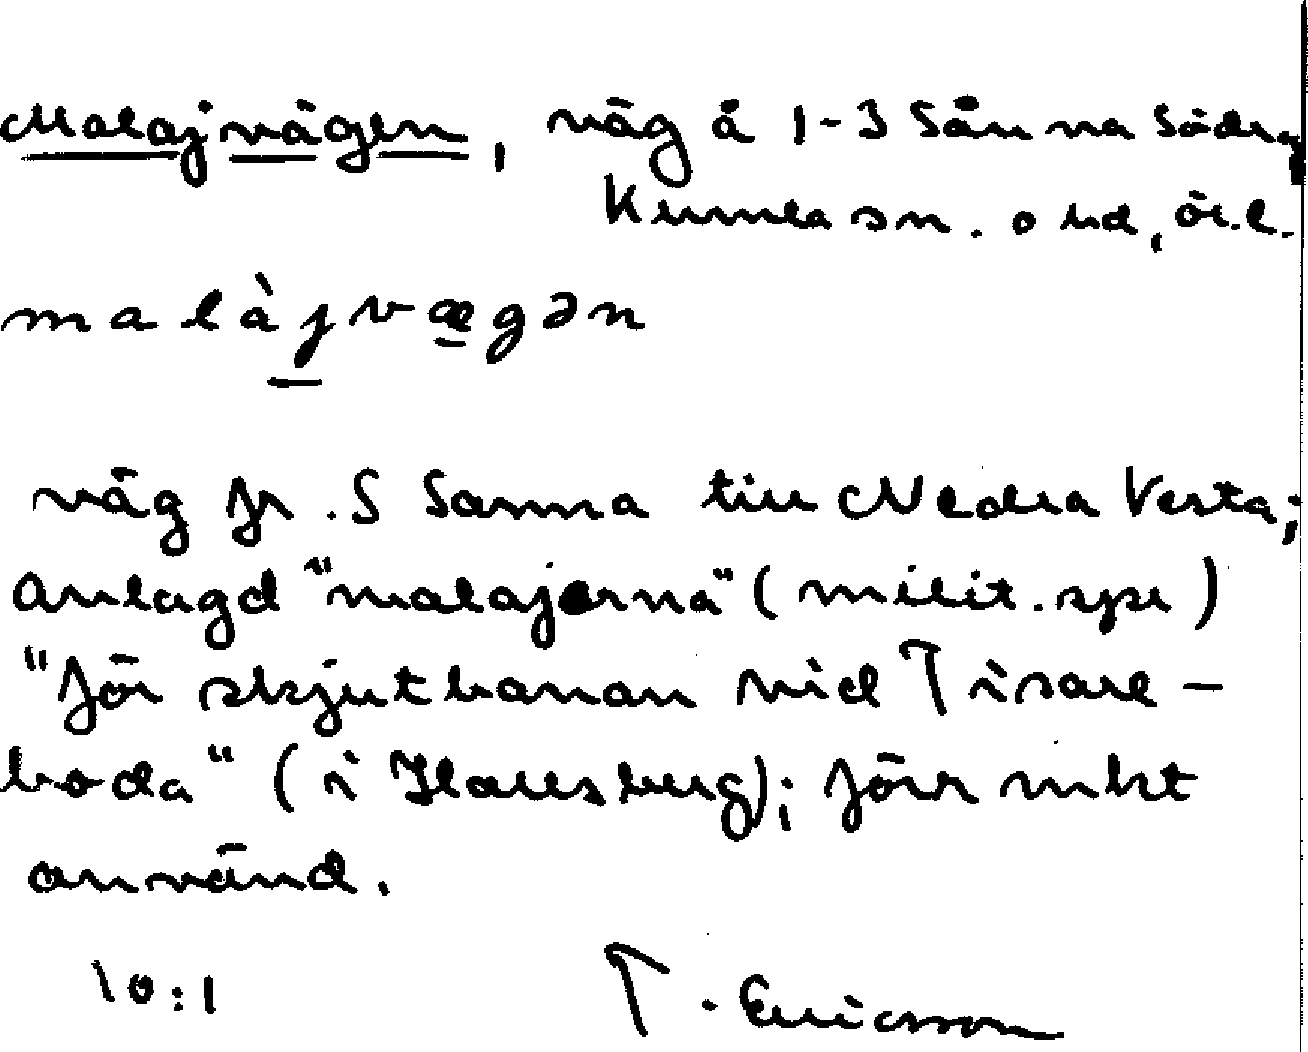 Malajvägen, väg å 1-3 Sånna Södra
Kumla sn. o hd, Ör.l.
malàjvægən
väg fr. S Sanna till Nedra Vesta;
anlagd "malajerna" (milit.spr)
"för skjutbanan vid Tisare-
boda" (i Hallsberg); förr mkt
använd.
10:1 T. Ericsson